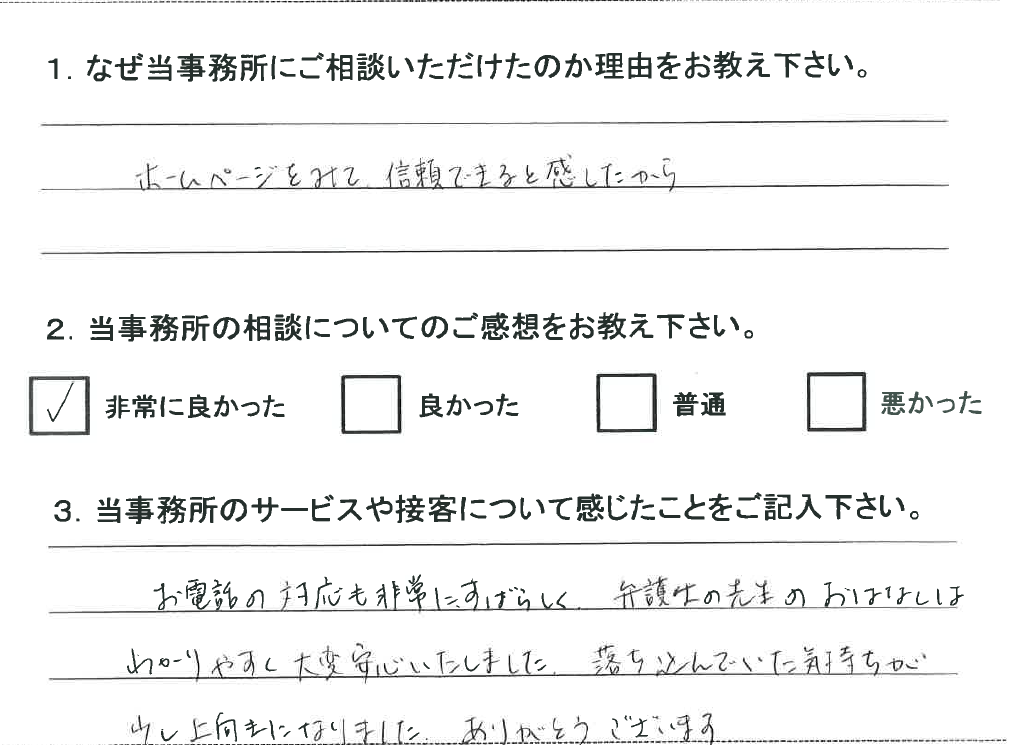 1. なぜ当事務所にご相談いただけたのか理由をお教え下さい。
ホームページをみて、信頼できると感じたから
2. 当事務所の相談についてのご感想をお教え下さい。
非常に良かった 良かった 普通 悪かった
3. 当事務所のサービスや接客について感じたことをご記入下さい。
お電話の対応も非常にすばらしく、弁護士の先生のおはなしは
わかりやすく大変安心いたしました。落ち込んでいた気持ちが
少し上向きになりました。ありがとうございます